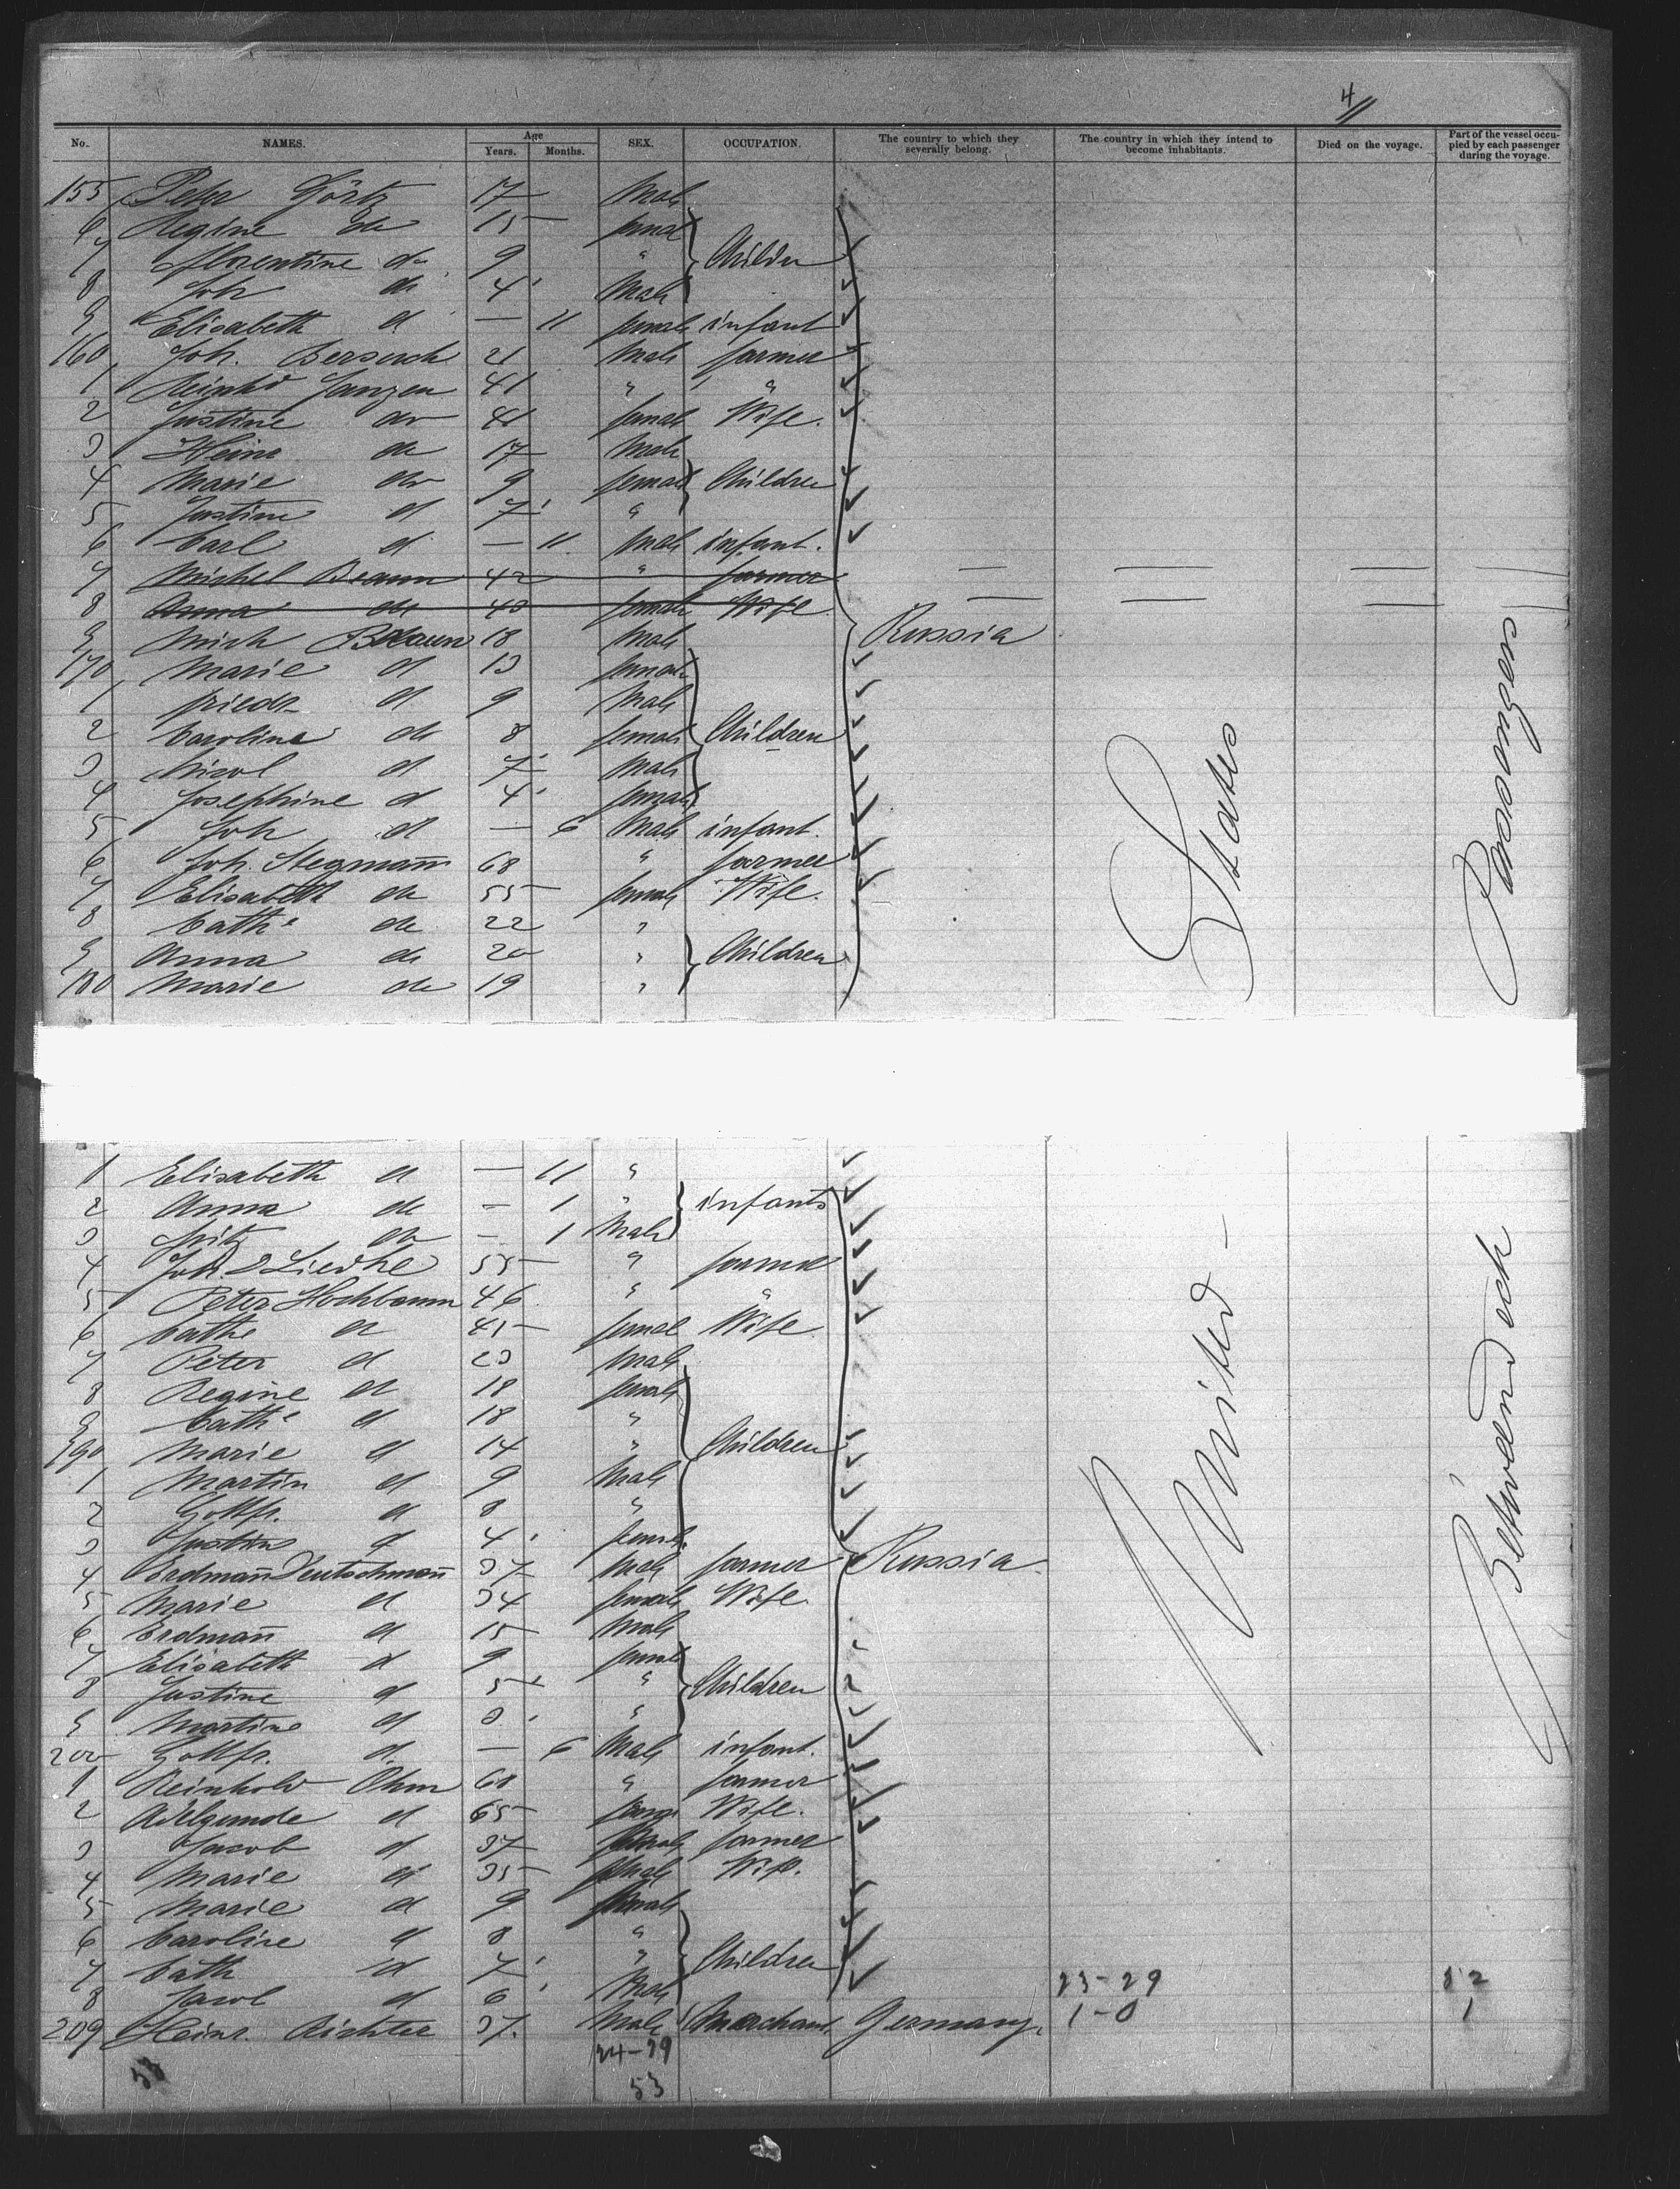 4/11
No. NAMES. Age Years. Months. SEX. OCCUPATION. The country to which they severally belong. The country in which they intend to become inhabitants. Died on the voyage. Part of the vessel occupied by each passenger during the voyage.
155 Peter Görtz 17 Male
6 Regine do 15 female
7 Florentine do 9 " Children
8 Joh do 4 Male
9 Elisabeth d — 11 female infant
160 Joh. 21 Male farmer
1 Reinhd Janzen 41 " "
2 Justine do 41 female Wife.
3 Heinr do 17 Male
4 Marie do 9 female Children
5 Justine d 7 "
6 Carl d — 11 Male infant.
7 Michel Braun 42 " farmer
8 Anna do 40 female Wife
9 Mich Braun 18 Male Russia
170 Marie d 13 female
1 friedr d 9 Male
2 Caroline do 8 female Children
3 d 7 Male
4 Josephine d 4 female
5 Joh d — 6 Male infant.
6 Joh. Stegmann 68 " farmer
7 Elisabeth do 55 female Wife.
8 Cathe do 22 "
9 Anna do 20 " Children
180 Marie do 19 "
1 Elisabeth d — 11 "
2 Anna do — 1 " infants
3 Fritz do — 1 Male
4 Joh. Liedke 55 " farmer
5 Peter Hochbaum 46 " "
6 Cathe d 45 female Wife
7 Peter d 23 Male
8 Regine d 18 female
9 Cathe d 18 "
190 Marie d 14 " Children
1 Martin d 9 Male
2 Gottfr. d 8 "
3 Justine d 4 female
4 Erdmann Deutschmann 37 Male farmer Russia
5 Marie d 34 female Wife
6 Erdmann d 15 Male
7 Elisabeth d 9 female
8 Justine d 5 " Children
9 Martine d 3 "
200 Gottfr. d — 6 Male infant.
1 Reinhold Ohm 68 " farmer
2 Adelgunde d 65 Wife.
3 Jacob d 37 Male farmer
4 Marie d 35 Wife.
5 Marie d 9 female
6 Caroline d 8 "
7 Cath d 7 " Children
8 Jacob d 6 Male
209 Heinr. Richter 37. Male Merchant. Germany.
United States
Between deck Passengers
23-29
1-0
52
1
24-29
53
53